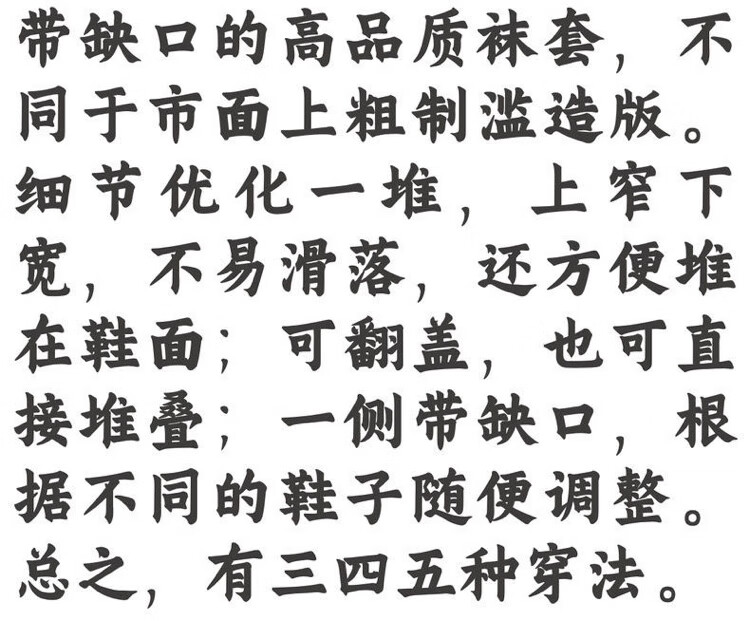 带缺口的高品质袜套，不
同于市面上粗制滥造版。
细节优化一堆，上窄下
宽，不易滑落，还方便堆
在鞋面；可翻盖，也可直
接堆叠；一侧带缺口，根
据不同的鞋子随便调整。
总之，有三四五种穿法。